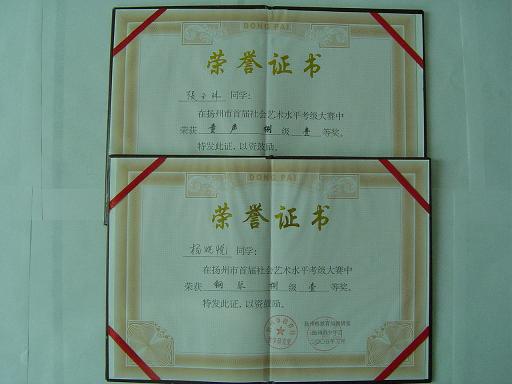 DONG PAI
荣誉证书
同学:
在扬州市首届社会艺术水平考级大赛中
荣获 童声 捌 级 壹 等奖。
特发此证，以资鼓励。
DONG PAI
荣誉证书
杨 同学:
在扬州市首届社会艺术水平考级大赛中
荣获 钢琴 捌 级 壹 等奖。
特发此证，以资鼓励。